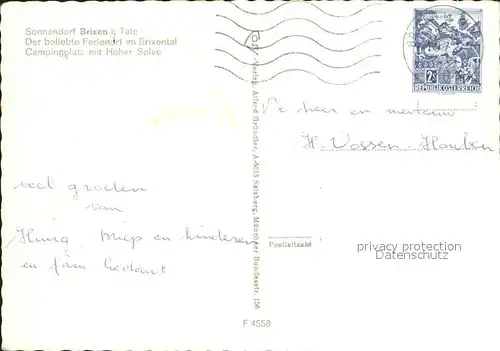 Sonnendorf Brixen i. Tale
Der beliebte Ferienort im Brixental
Campingplatz mit Hoher Salve
2S
REPUBLIK ÖSTERREICH
Verlag Alfred Gründler, A-5015 Salzburg, Münchner Bundesstr. 156
De heer en mevrouw
H. Vossen-Houben
veel groeten
van
Miep en kinderen
en fam
Postleitzahl
privacy protection
Datenschutz
F 4558